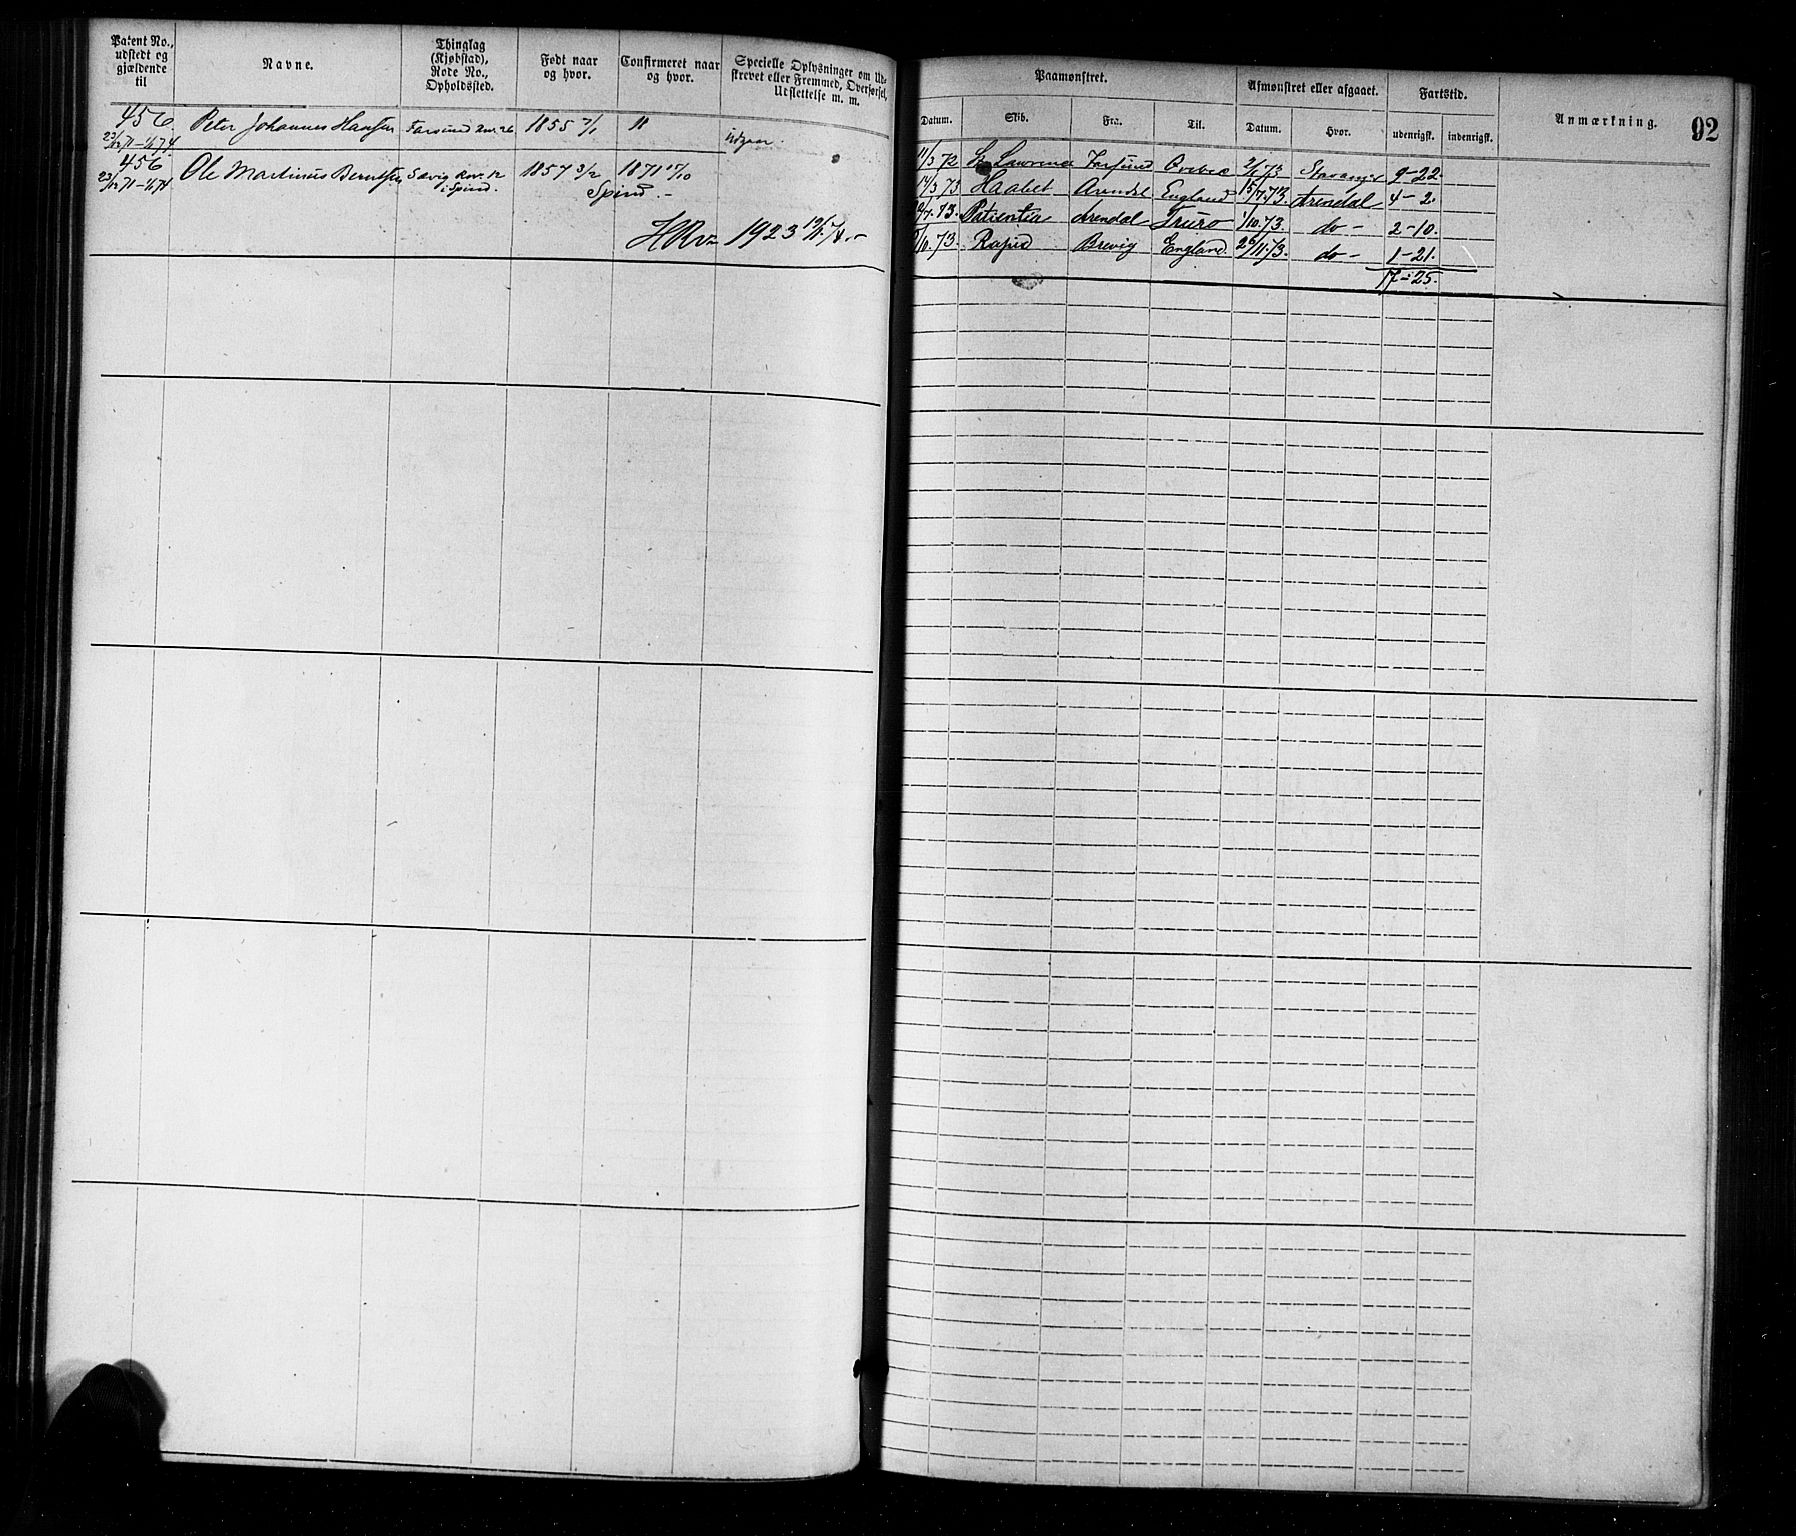 Patent No., udstedt og gjældende til
Navne.
Thinglag (Kjøbstad), Rode No., Opholdssted.
Født naar og hvor.
Confirmeret naar og hvor.
Specielle Oplysninger om Udskrevet eller Fremmed, Overførsel, Udslettelse m. m.
456. Peter Johannes Hansen Farsund 1855 7/1 "
23/12 71 - 1/1 74 udgaar.
456 Ole Martinus Berntsen i Spind. 1857 3/2 1871 15/10
23/12 71 - 1/1 74 Spind.-
1923
Paamønstret.
Afmønstret eller afgaaet.
Fartstid.
Anmærkning.
92
Datum. Skib. Fra. Til. Datum. Hvor. udenrigsk. indenrigsk.
11/3 72 Lawrence Farsund Qvebec 2/1 73 Stavanger 9-22.
14/3 73 Haabet Arendal England 15/7 73. Arendal 4-2.
7.73. Patientia Arendal Truro 1/10.73. do - 2-10.
/10.73. Rapid Brevig England. 2/11.73. do - 1-21.
17-25.